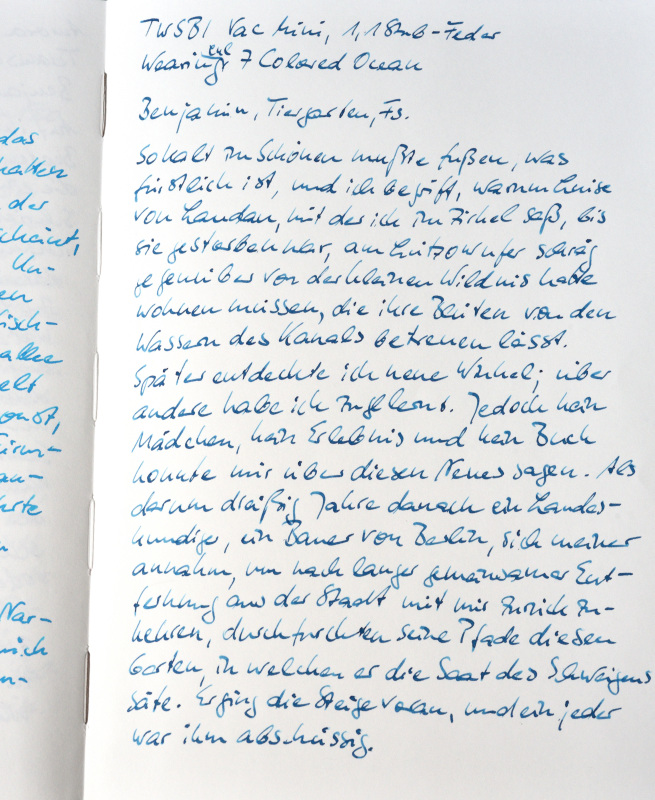 das
hatten
der
scheint,
Un-
en
isch-
alle
elt
onst,
Türm-
an-
erte
n
Nar-
mich
en-
TWSBI Vac Mini, 1,1 Stub-Feder
Wearingeul 7 Colored Ocean
Benjamin, Tiergarten, Fs.
So halt im Schönen mußte fußen, was
fürstlich ist, und ich begriff, warum Luise
von Landau, mit der ich im Zirkel saß, bis
sie gestorben war, am Lützowufer schräg
gegenüber von der kleinen Wildnis hatte
wohnen müssen, die ihre Blüten von den
Wassern des Kanals betreuen lässt.
Später entdeckte ich neue Winkel; über
andere habe ich zugelernt. Jedoch kein
Mädchen, kein Erlebnis und kein Buch
konnte mir über diesen Neues sagen. Als
darum dreißig Jahre danach ein Landes-
kundiger, ein Bauer von Berlin, sich meiner
annahm, um nach langer gemeinsamer Ent-
fernung aus der Stadt mit mir zurück zu-
kehren, durchfurchten seine Pfade diesen
Garten, in welchen er die Saat des Schweigens
säte. Er ging die Steige voran, und ein jeder
war ihm abschüssig.